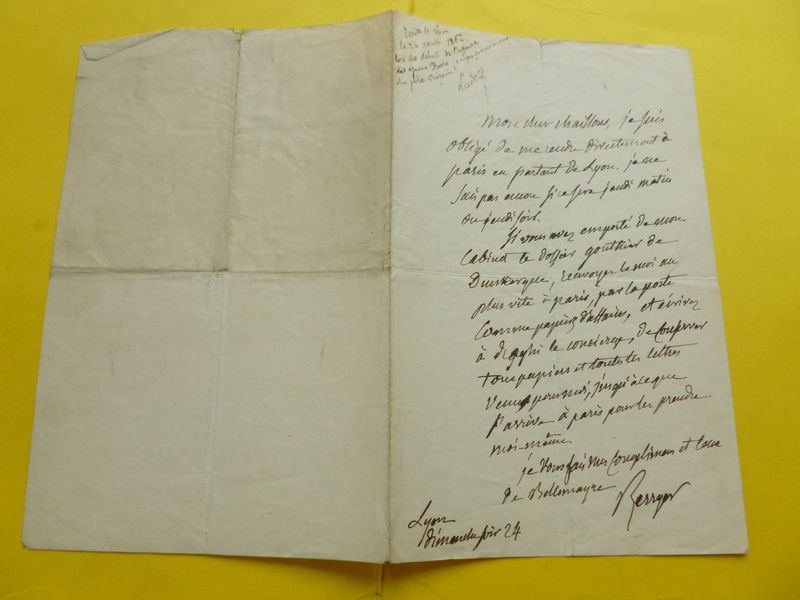 le 24 août 1862
lors des débats de l'affaire
Mon cher chaillous, je suis
obligé de me rendre directement à
paris en partant de Lyon. je ne
sais pas encore si ce sera jeudi matin
ou jeudi soir.
Si vous avez emporté de mon
Cabinet le dossier gonthier de
Dunkerque, renvoyez le moi au
plus vite à paris, par la poste
Comme papiers d'affaires, et écrivez
à le concierge, de conserver
tous papiers et toutes les lettres
Venus pour moi, jusqu'à ce que
J'arrive à paris pour les prendre
moi-même.
je vous fais mes complimens et ceux
de Bellemayre Berryer
Lyon
dimanche soir 24